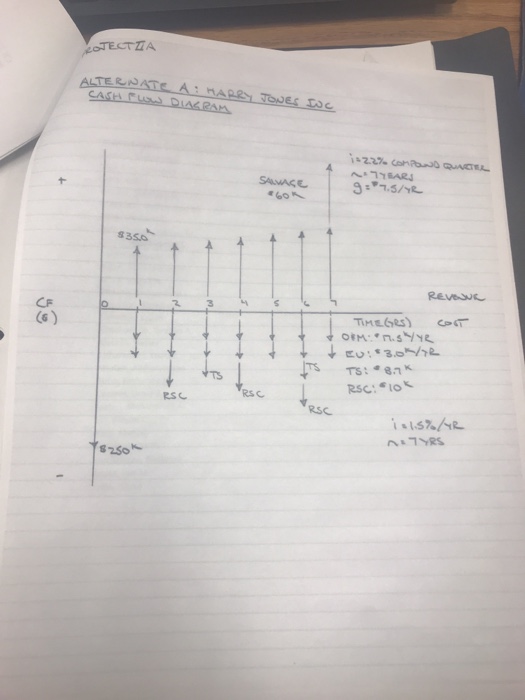 ROJECT IIA
ALTERNATE A: HARRY JONES INC
CASH FLOW DIAGRAM
i=22% COMPOUND QUARTER
n=7 YEARS
g=$7.5/YR
+
SALVAGE
$60K
$350K
REVENUE
0 1 2 3 4 5 6 7
CF
($)
TIME(YRS) COST
$/YR
EU: $3.0K/YR
TS TS TS: $8.7K
RSC RSC RSC: $10K
RSC
i=1.5%/YR
n=7YRS
$250K
-